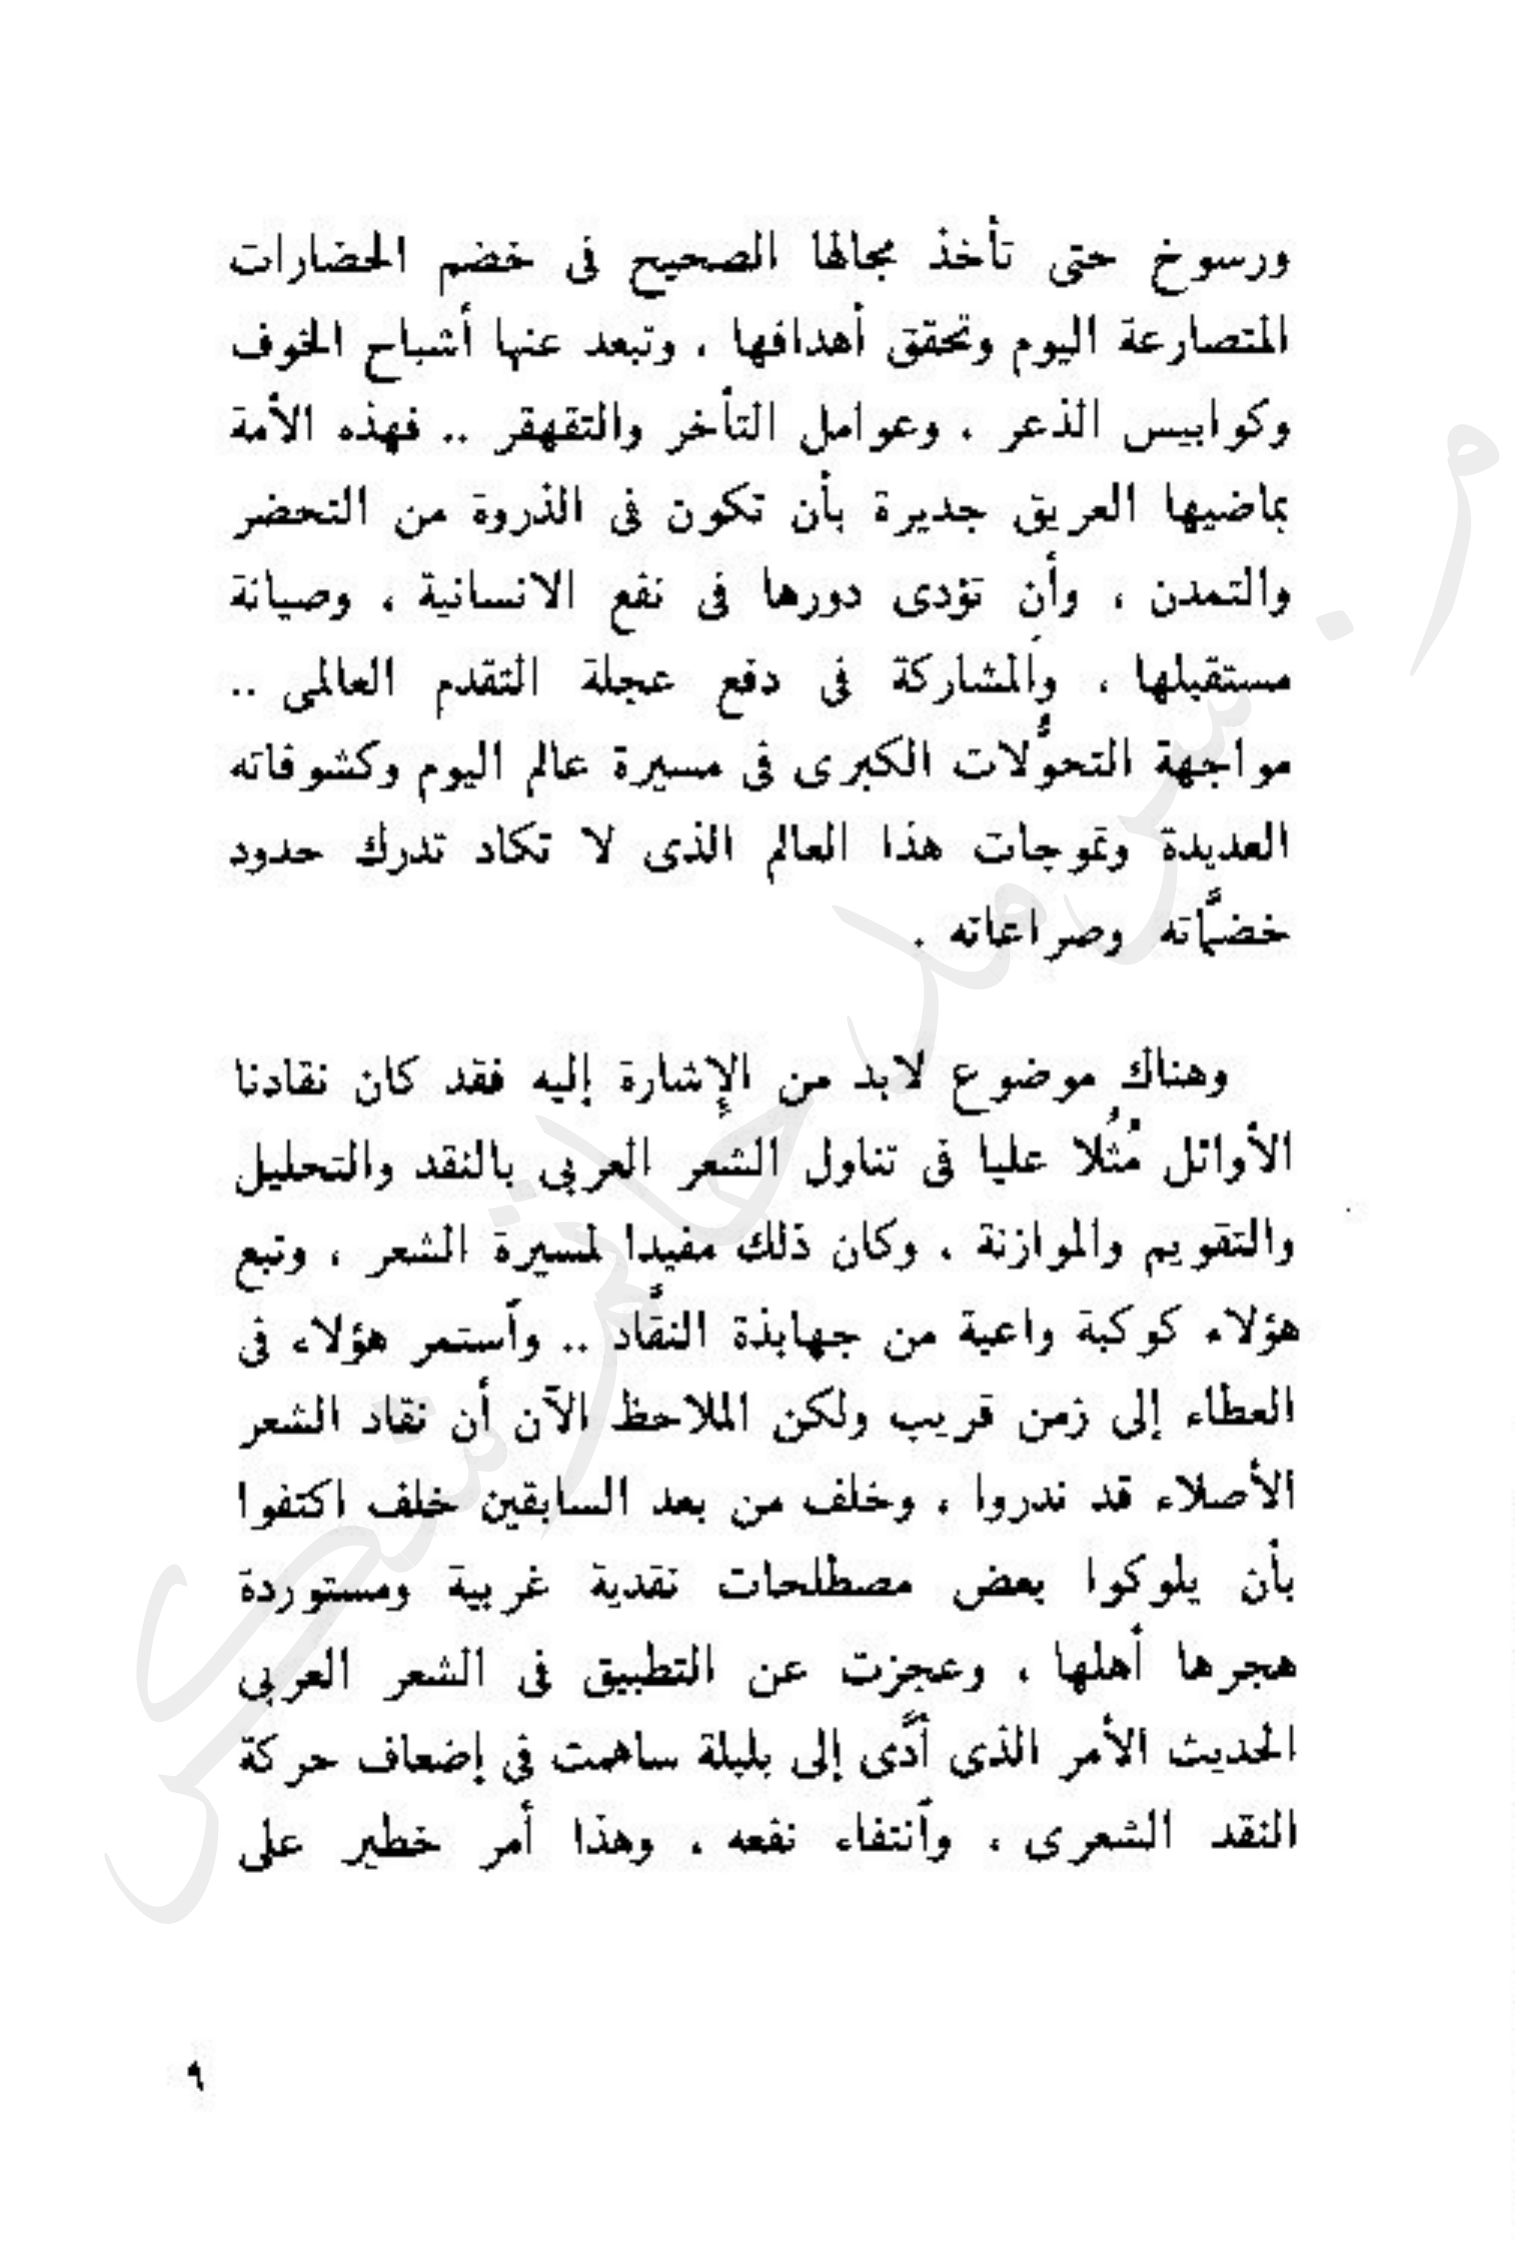 ورسوخ حتى تأخذ مجالها الصحيح فى خضم الحضارات
المتصارعة اليوم وتحقق أهدافها ، وتبعد عنها أشباح الخوف
وكوابيس الذعر ، وعوامل التأخر والتقهقر .. فهذه الأمة
بماضيها العريق جديرة بأن تكون فى الذروة من التحضر
والتمدن ، وأن تؤدى دورها فى نفع الانسانية ، وصيانة
مستقبلها ، والمشاركة فى دفع عجلة التقدم العالمى ..
مواجهة التحوُّلات الكبرى فى مسيرة عالم اليوم وكشوفاته
العديدة وتموجات هذا العالم الذى لا تكاد تدرك حدود
خضمَّاته وصراعاته .
وهناك موضوع لابد من الإِشارة إليه فقد كان نقادنا
الأوائل مُثُلا عليا فى تناول الشعر العربى بالنقد والتحليل
والتقويم والموازنة . وكان ذلك مفيدا لمسيرة الشعر ، وتبع
هؤلاء كوكبة واعية من جهابذة النقَّاد .. وآستمر هؤلاء فى
العطاء إلى زمن قريب ولكن الملاحظ الآن أن نقاد الشعر
الأصلاء قد ندروا ، وخلف من بعد السابقين خلف اكتفوا
بأن يلوكوا بعض مصطلحات نقدية غربية ومستوردة
هجرها أهلها ، وعجزت عن التطبيق فى الشعر العربى
الحديث الأمر الذى أدَّى إلى بلبلة ساهمت فى إضعاف حركة
النقد الشعرى ، وآنتفاء نفعه . وهذا أمر خطير على
٩